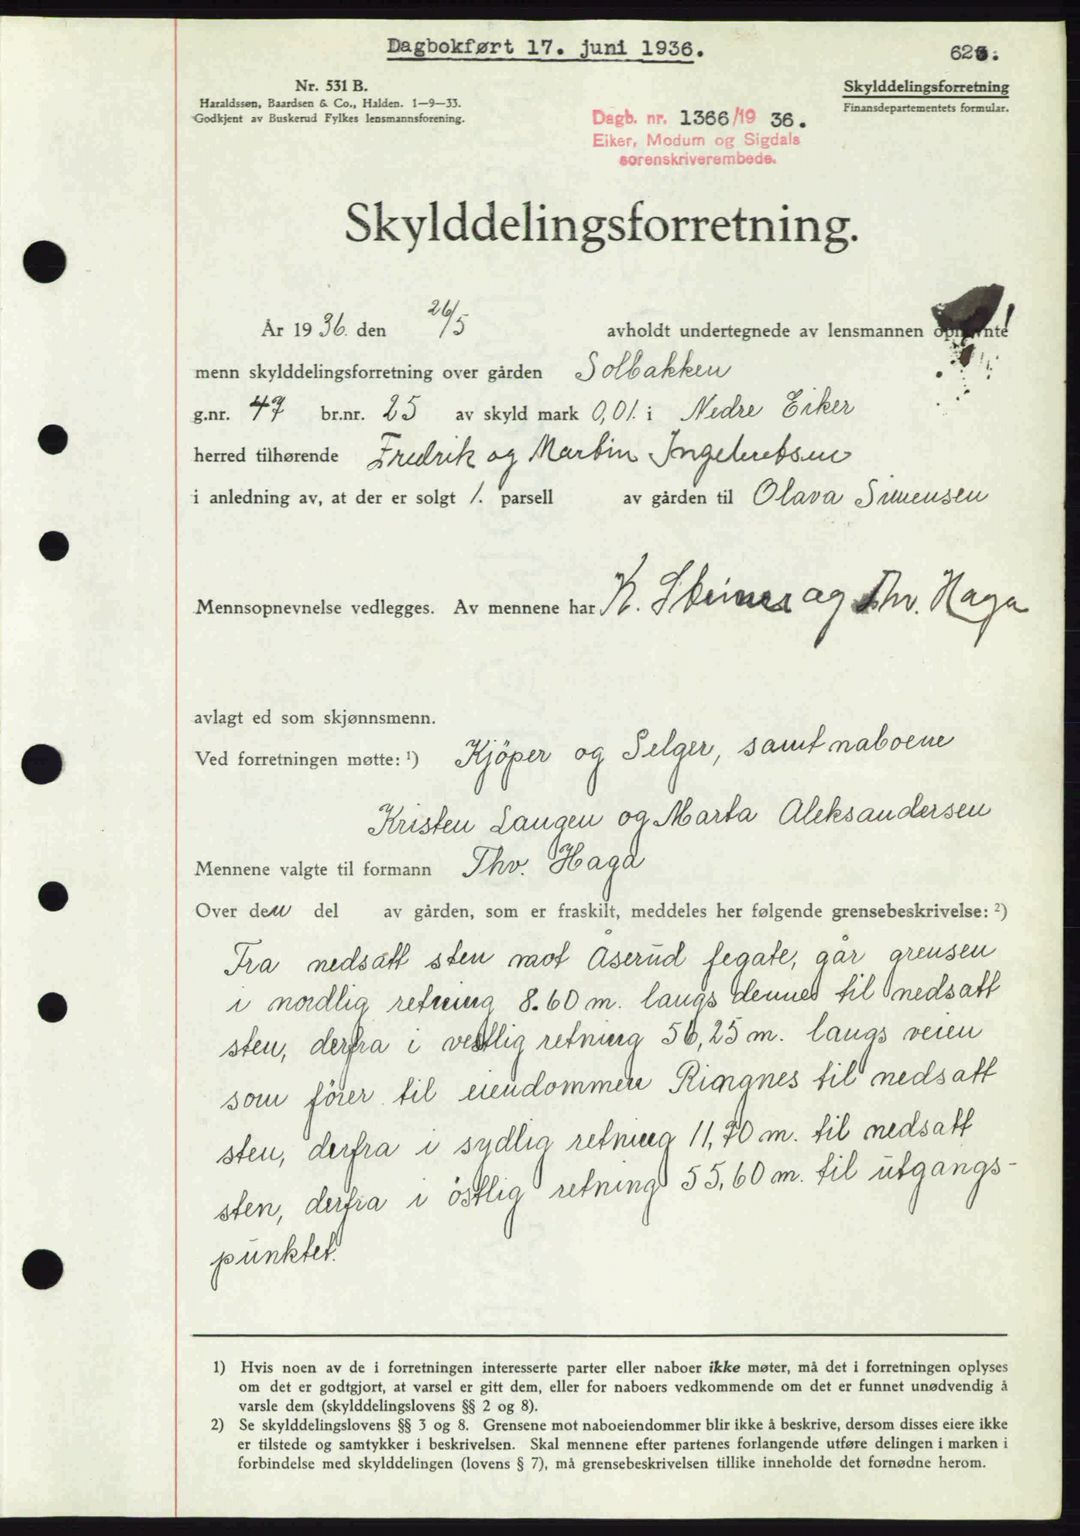 Dagbokført 17. juni 1936.
Nr. 531 B.
Haraldssen, Baardsen & Co., Halden. 1—9—33.
Godkjent av Buskerud Fylkes lensmannsforening.
Dagb. nr. 1366/19 36.
Eiker, Modum og Sigdals
sorenskriverembede.
Skylddelingsforretning
Finansdepartementets formular.
Skylddelingsforretning.
År 1936. den 26/5 avholdt undertegnede av lensmannen
menn skylddelingsforretning over gården Solbakken
g.nr. 47 br.nr. 25 av skyld mark 0,01. i Nedre Eiker
herred tilhørende Fredrik og Martin Ingebretsen
i anledning av, at der er solgt 1. parsell av gården til Olava Simensen
Mennsopnevnelse vedlegges. Av mennene har K. Steiner og Thv. Haga
avlagt ed som skjønnsmenn.
Ved forretningen møtte: ¹) Kjöper og Selger, samt naboene
Kristen Laugen og Marta Aleksandersen
Mennene valgte til formann Thv. Haga
Over den del av gården, som er fraskilt, meddeles her følgende grensebeskrivelse: ²)
Fra nedsatt sten mot Åserud fegate, går grensen
i nordlig retning 8.60 m. langs dennes til nedsatt
sten, derfra i vestlig retning 56,25 m. langs veien
som förer til eiendommen Ringnes til nedsatt
sten, derfra i sydlig retning 11,70 m. til nedsatt
sten, derfra i östlig retning 55,60 m. til utgangs-
punktet.
1) Hvis noen av de i forretningen interesserte parter eller naboer ikke møter, må det i forretningen oplyses
om det er godtgjort, at varsel er gitt dem, eller for naboers vedkommende om det er funnet unødvendig å
varsle dem (skylddelingslovens §§ 2 og 8).
2) Se skylddelingslovens §§ 3 og 8. Grensene mot naboeiendommer blir ikke å beskrive, dersom disses eiere ikke
er tilstede og samtykker i beskrivelsen. Skal mennene efter partenes forlangende utføre delingen i marken i
forbindelse med skylddelingen (lovens § 7), må grensebeskrivelsen tillike inneholde det fornødne herom.